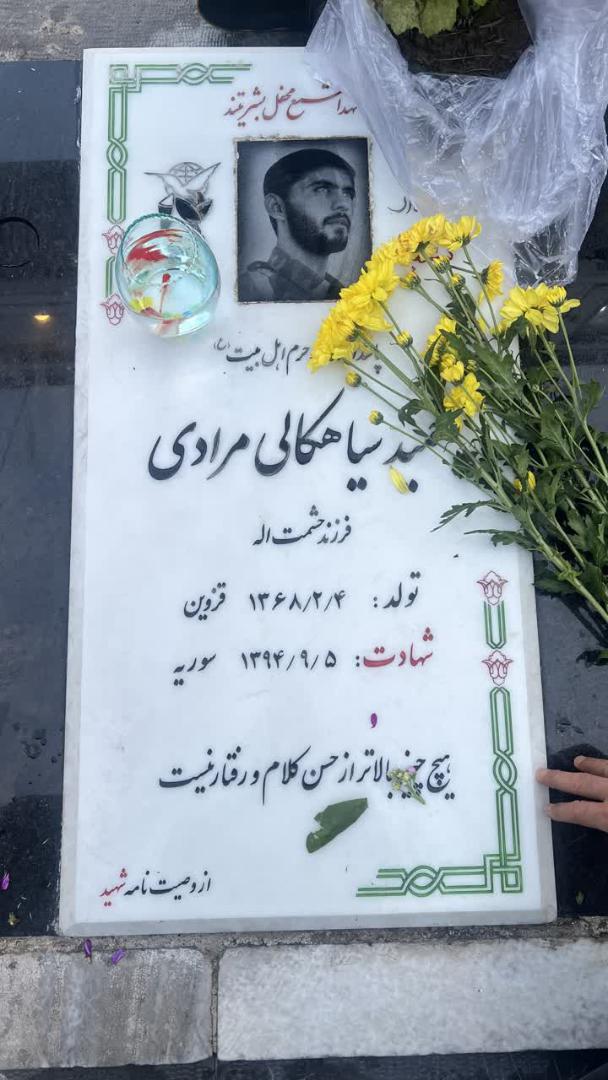 شمع محفل بشریتند
حرم اهل بیت (ع)
سیاهکالی مرادی
فرزند حشمت اله
تولد: ۱۳۶۸/۲/۴ قزوین
شهادت: ۱۳۹۴/۹/۵ سوریه
هیچ چیز بالاتر از حسن کلام و رفتار نیست
از وصیت نامه شهید